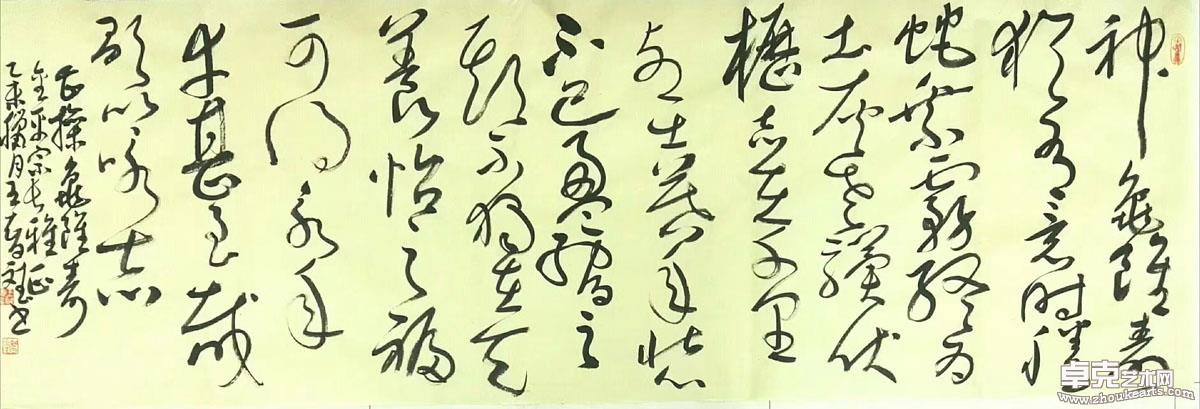 神龜雖壽
猶有竟時騰
蛇乘霧終為
土灰老驥伏
櫪志在千里
烈士暮年壯心
不已盈縮之
期不獨在天
養怡之福
可得永年
幸甚至哉
歌以詠志
曹操龜雖壽
宗長雅正
乙未臘月王智書
卓克艺术网
www.zhoukearts.com